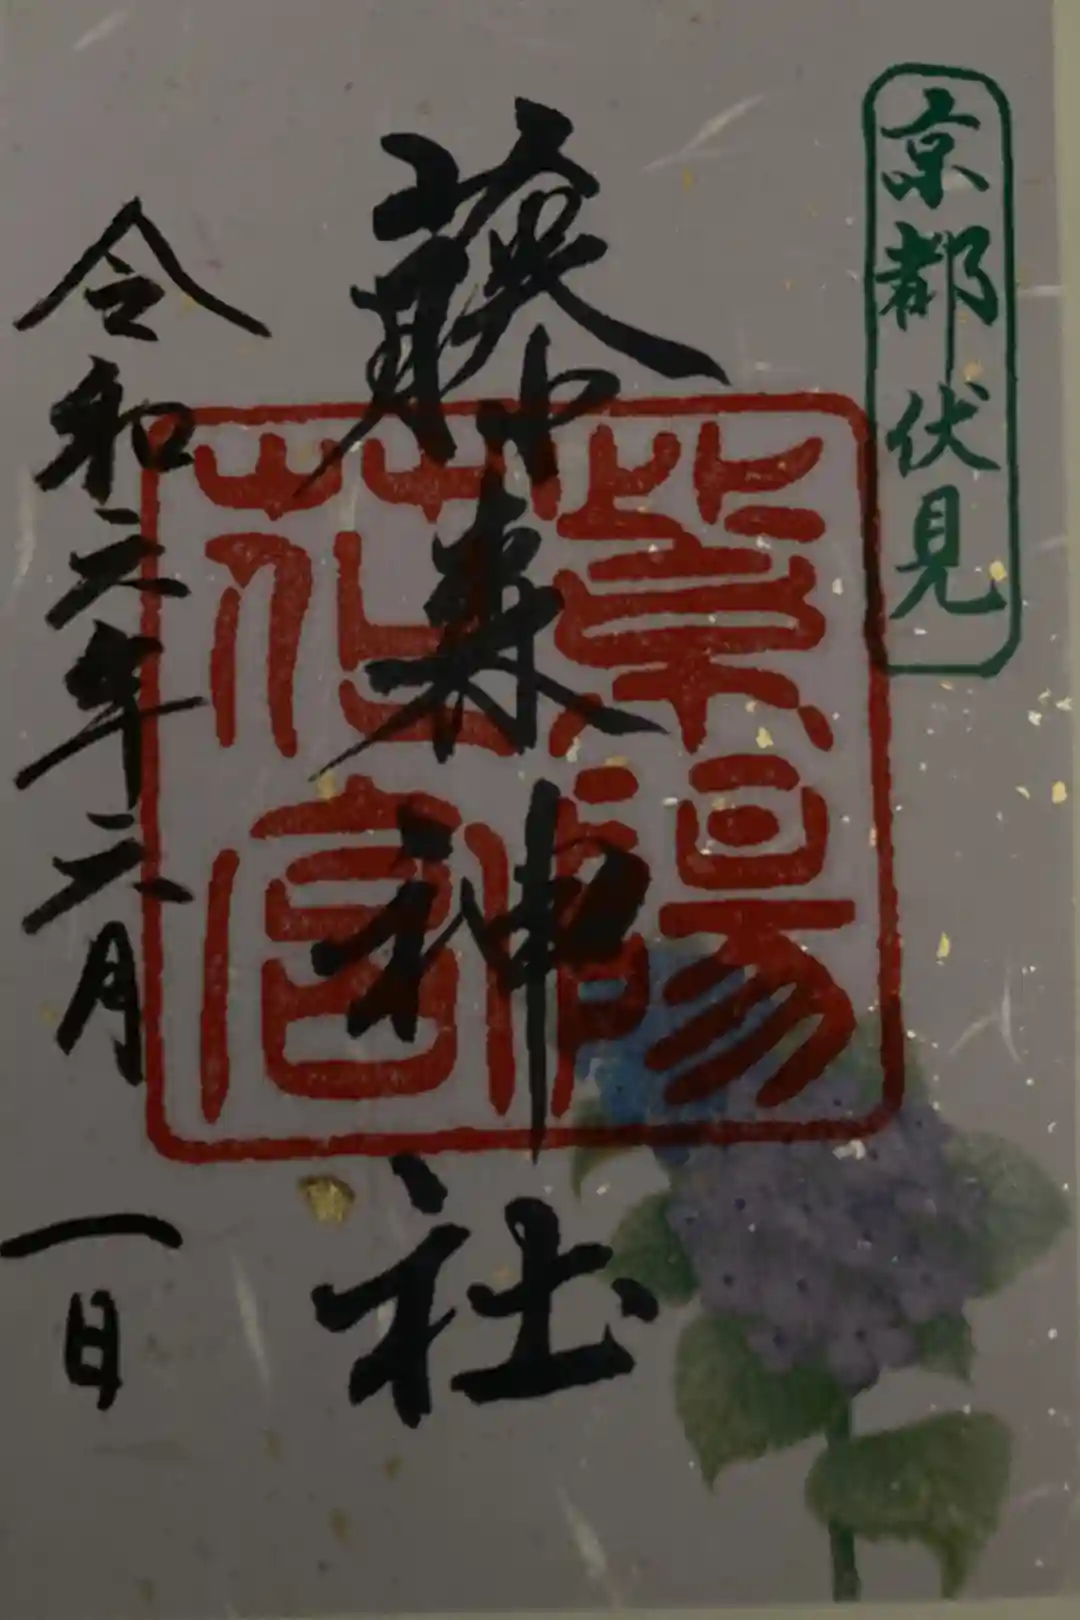 京都伏見
藤森神社
紫陽
花宮
令和元年六月一日